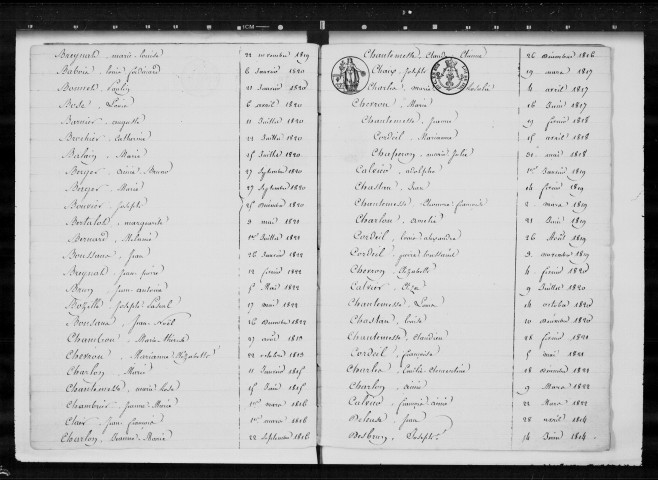 Breynat, marie louise 22 novembre 1819
Baboin, louis ferdinand 6 Janvier 1820
Bonnet, Paulin 21 Janvier 1820
Bode, Louis 6 avril 1820
Barnier, auguste 11 Juillet 1820
Brochier, catherine 22 Juillet 1820
Balain, Marie 15 Juillet 1820
Berger, aimé Bruno 27 Septembre 1820
Berger, Marie 27 Septembre 1820
Bouvier, Joseph 25 Décembre 1820
Bertalot, marguerite 3 mai 1821
Bernard, Mélanie 1er Juillet 1821
Boussano, Jean 26 Janvier 1822
Breynat, Jean pierre 12 fevrier 1822
Brun, Jean antoine 5 Mai 1822
Joseph Pascal 17 mai 1822
Bousano, Jean Noël 26 Décembre 1822
Chambon, Marie thérèse 27 avril 1813
Cherron, Marianne Elizabethe 22 octobre 1813
Charlon, Marie 11 Janvier 1815
Chantemesse, marie rose 15 Juin 1815
Chambrier, Jeanne Marie 1er mars 1816
Clair, Jean francois 1er mars 1816
Charlon, Jeanne Marie 22 Septembre 1816
Chantemesse, Claude Etienne 26 Décembre 1816
Chaix, Joseph 19 mars 1817
Charlon, marie 4 avril 1817
Cherron, Marie 16 Juin 1817
Chantemesse, Jeanne 19 fevrier 1818
Cordeil, Marianne 15 avril 1818
Chaperon, marie Julie 31 mai 1818
Calvier, adolphe 1er Janvier 1819
Chastan, Jean 14 fevrier 1819
Chantemesse, Etienne francois 2 mars 1819
Charlon, Amelie 21 Juin 1819
Cordeil, louis alexandre 26 Août 1819
Cordeil, pierre toussaint 3 novembre 1819
Cherron, Elizabethe 4 fevrier 1820
Calvier, Eliza 9 Juillet 1820
Chantemesse, Louis 14 octobre 1820
Chastan, louise 10 Décembre 1820
Chantemesse, Claudine 28 fevrier 1821
Cordeil, françoise 5 mai 1821
Charlon, Emilie Clementine 18 Décembre 1821
Charlon, aimé 9 Mars 1822
Calvier, françois aimé 21 Mars 1822
Jean 28 avril 1814
Desbrun, Joseph 14 Juin 1814